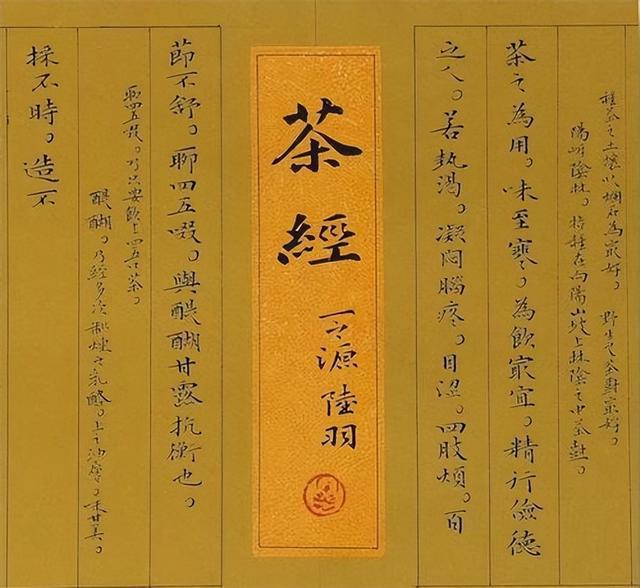 種茶之土壤以爛石為最好。野生之茶對最好。
陽崖陰林。指種在向陽山坡上林陰之中茶
茶之為用。味至寒。為飲最宜。精行儉德
之人。若熱渴。凝悶腦疼。目澀。四肢煩。百
茶經
一之源 陸羽
節不舒。聊四五啜。與醍醐甘露抗衡也。
聊四五啜。乃只要飲上四五口茶。
醍醐。乃經多次製煉之乳酪。上之油層。味甘美。
採不時。造不